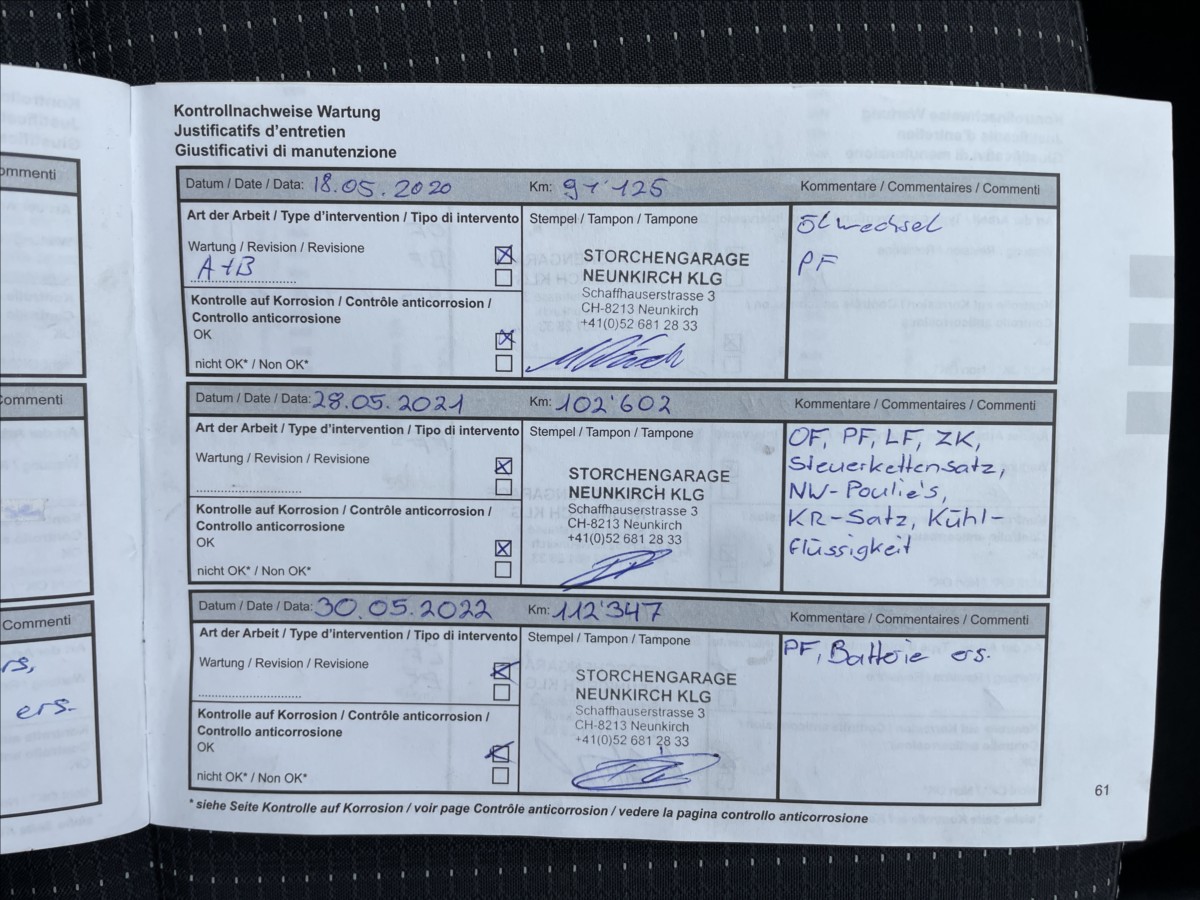 Kontrollnachweise Wartung
Justificatifs d'entretien
Giustificativi di manutenzione
Datum / Date / Data: 18.05.2020 Km: 91'125 Kommentare / Commentaires / Commenti
Art der Arbeit / Type d'intervention / Tipo di intervento Stempel / Tampon / Tampone
Ölwechsel
PF
Wartung / Revision / Revisione
A+B
STORCHENGARAGE
NEUNKIRCH KLG
Schaffhauserstrasse 3
CH-8213 Neunkirch
+41(0)52 681 28 33
Kontrolle auf Korrosion / Contrôle anticorrosion /
Controllo anticorrosione
OK
nicht OK* / Non OK*
Datum / Date / Data: 28.05.2021 Km: 102'602 Kommentare / Commentaires / Commenti
Art der Arbeit / Type d'intervention / Tipo di intervento Stempel / Tampon / Tampone
OF, PF, LF, ZK,
Steuerkettensatz,
NW-Poulie's,
KR-Satz, Kühl-
flüssigkeit
Wartung / Revision / Revisione
STORCHENGARAGE
NEUNKIRCH KLG
Schaffhauserstrasse 3
CH-8213 Neunkirch
+41(0)52 681 28 33
Kontrolle auf Korrosion / Contrôle anticorrosion /
Controllo anticorrosione
OK
nicht OK* / Non OK*
Datum / Date / Data: 30.05.2022 Km: 112'347 Kommentare / Commentaires / Commenti
Art der Arbeit / Type d'intervention / Tipo di intervento Stempel / Tampon / Tampone
PF, Batterie ers.
Wartung / Revision / Revisione
STORCHENGARAGE
NEUNKIRCH KLG
Schaffhauserstrasse 3
CH-8213 Neunkirch
+41(0)52 681 28 33
Kontrolle auf Korrosion / Contrôle anticorrosion /
Controllo anticorrosione
OK
nicht OK* / Non OK*
* siehe Seite Kontrolle auf Korrosion / voir page Contrôle anticorrosion / vedere la pagina controllo anticorrosione
61
ommenti
Commenti
Commenti
rs,
ers.